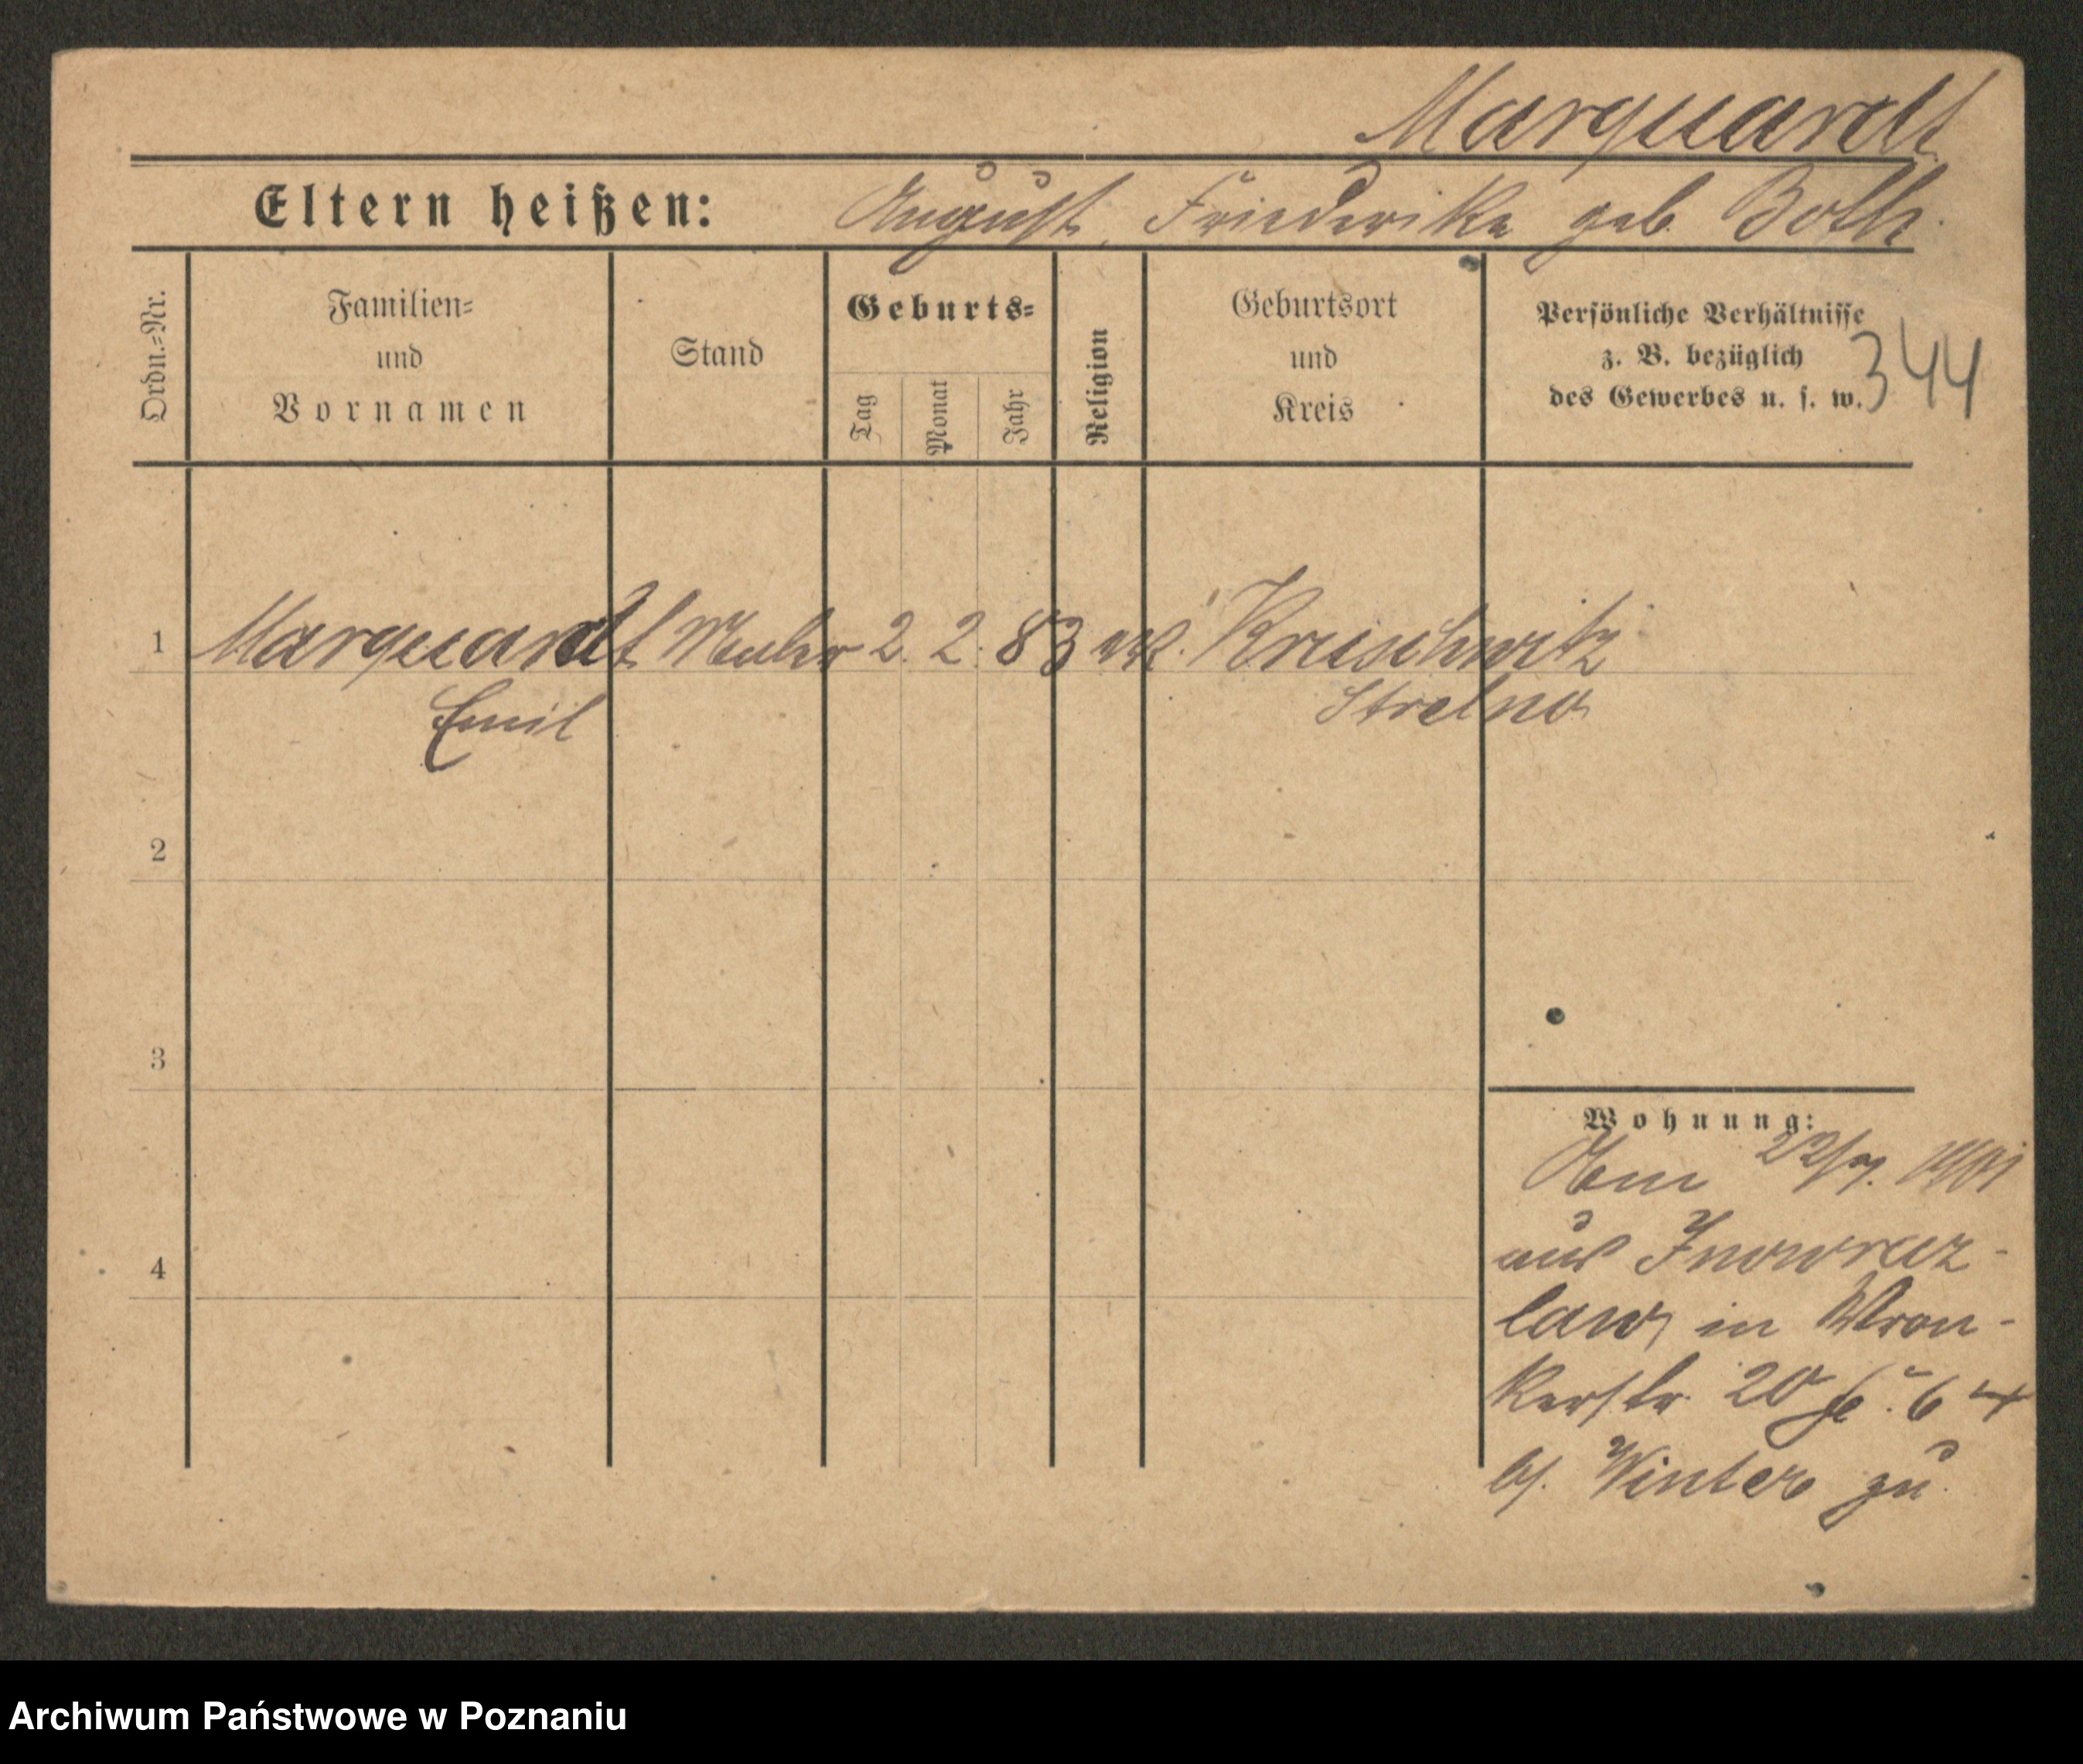 Marquardt
Eltern heißen: August, Friederike geb. Both.
Ordn.-Nr.
Familien-
und
Vornamen
Stand
Geburts-
Tag
Monat
Jahr
Religion
Geburtsort
und
Kreis
Persönliche Verhältnisse
z. B. bezüglich
des Gewerbes u. s. w.
344
1 Marquardt Maler 2. 2. 83 Kruschwitz
Emil Strelno
2
3
4
Wohnung:
Am 1901
aus Inowraz-
law, in Wron-
kerstr. 20
b/. Winter zu
Archiwum Państwowe w Poznaniu